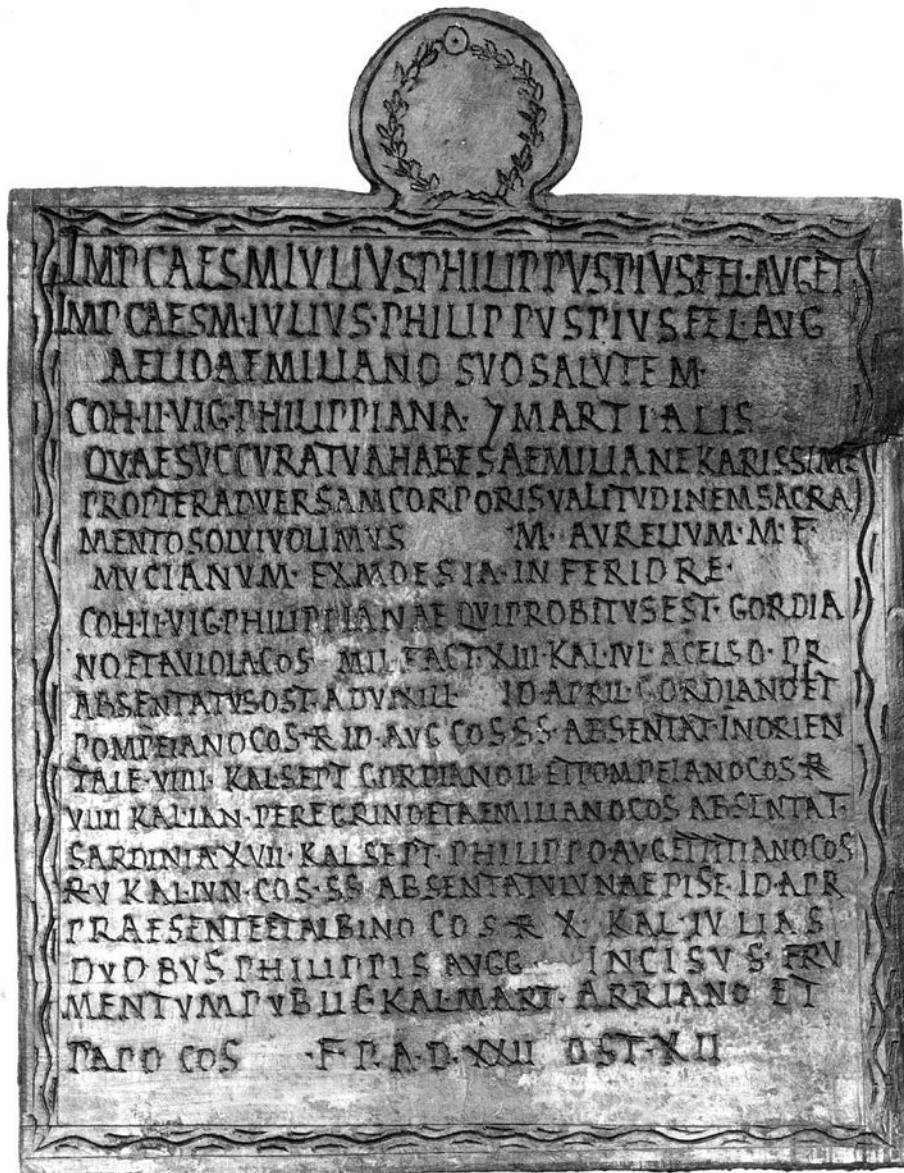 IMP CAES M IVLIVS PHILIPPVS PIVS FEL·AVG ET
IMP CAES M·IVLIVS·PHILIPPVS PIVS FEL·AVG
AELIO AEMILIANO SVO SALVTEM·
COH·II·VIG·PHILIPPIANA· 7 MARTIALIS
QVAE SVC CVRA TVA HABES AEMILIANE KARISSIME
PROPTER ADVERSAM CORPORIS VALITVDINEM SACRA
MENTO SOLVI VOLIMVS M· AVRELIVM· M· F·
MVCIANVM· EX MOESIA· INFERIORE·
COH·II·VIG·PHILIPPIANAE QVI PROBITVS EST· GORDIA
NO ET AVIOLA COS MIL·FACT·XIII·KAL·IVL·A CELSO· PR
ABSENTATVS OST· ADV IO·APRIL·GORDIANO II ET
POMPEIANO COS·R ID·AVG COS SS·ABSENTAT·IN ORIEN
TALE·VIIII·KAL SEPT GORDIANO II·ET POMPEIANO COS·R
VIIII KAL IAN·PEREGRINO ET AEMILIANO COS ABSENTAT·
SARDINIA XVII·KAL SEPT·PHILIPPO AVG ET TITIANO COS
R V KAL IVN·COS·SS ABSENTATV LVNAE PISE·ID·APR
PRAESENTE ET ALBINO COS R X KAL·IVLIAS
DVOBVS PHILIPPIS AVGG INCISVS·FRV
MENTVM PVBLIG KAL·MART· ARRIANO ET
PAPO COS ·F·P·A·D·XXII OST·XII